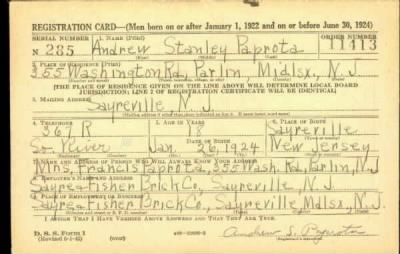 REGISTRATION CARD—(Men born on or after January 1, 1922 and on or before June 30, 1924)
SERIAL NUMBER 1. NAME (Print) ORDER NUMBER
N 285 Andrew Stanley Paprota 11413
(First) (Middle) (Last)
2. PLACE OF RESIDENCE (Print)
355 Washington Rd, Parlin, Midlsx, N.J.
[THE PLACE OF RESIDENCE GIVEN ON THE LINE ABOVE WILL DETERMINE LOCAL BOARD
JURISDICTION; LINE 2 OF REGISTRATION CERTIFICATE WILL BE IDENTICAL]
3. MAILING ADDRESS
Sayreville N.J.
4. TELEPHONE 5. AGE IN YEARS 6. PLACE OF BIRTH
367 R 18 Sayreville
DATE OF BIRTH
So. River Jan. 26, 1924 New Jersey
7. NAME AND ADDRESS OF PERSON WHO WILL ALWAYS KNOW YOUR ADDRESS
Mrs. Francis Paprota, 355 Wash. Rd, Parlin, N.J.
8. EMPLOYER'S NAME AND ADDRESS
Sayre & Fisher Brick Co., Sayreville, N.J.
9. PLACE OF EMPLOYMENT OR BUSINESS
Sayre & Fisher Brick Co., Sayreville Mdlsx, N.J.
I AFFIRM THAT I HAVE VERIFIED ABOVE ANSWERS AND THAT THEY ARE TRUE.
D. S. S. Form 1
(over) Andrew S. Paprota